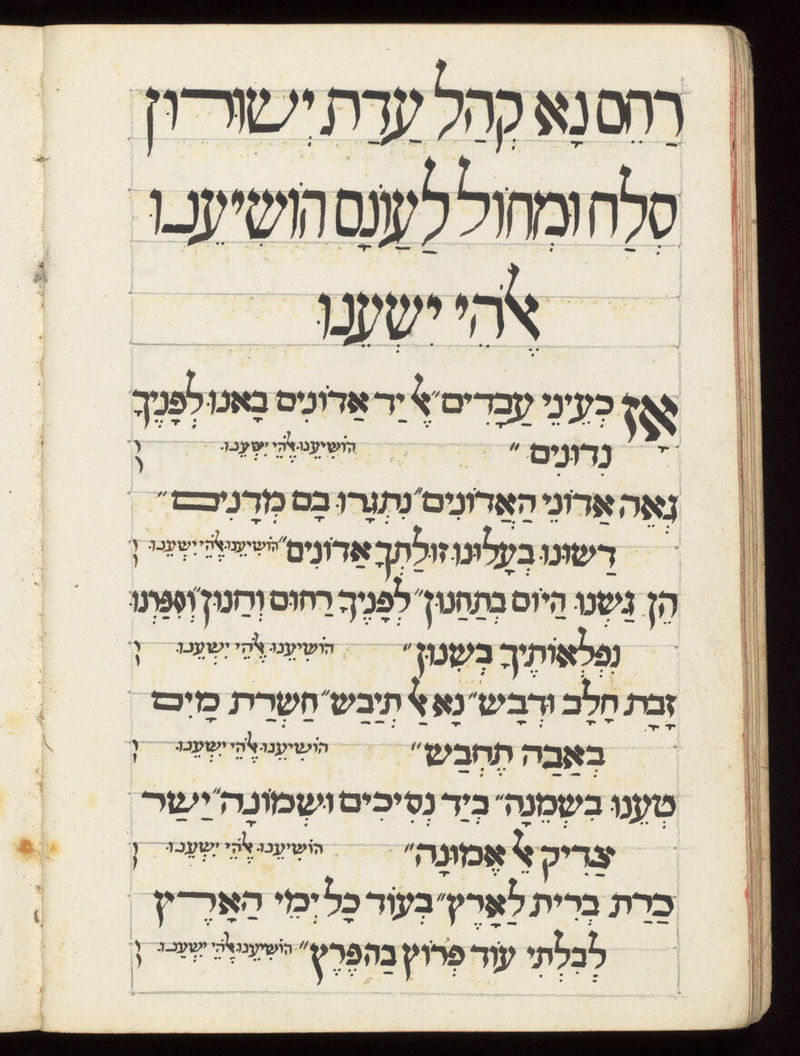 רַחֵם נָא קְהַל עֲדַת יְשׁוּרוּן
סְלַח וּמְחוֹל לַעֲוֹנָם הוֹשִׁיעֵנוּ
אֱלֹהֵי יִשְׁעֵנוּ
אָז כְּעֵינֵי עֲבָדִים״ אֶל יַד אֲדוֹנִים בָּאנוּ לְפָנֶיךָ
נְדוֹנִים ״ הוֹשִׁיעֵנוּ אֱלֹהֵי יִשְׁעֵנוּ
גְּאֵה אֲדוֹנֵי הָאֲדוֹנִים״ נִתְגָּרוּ בָם מְדָנִים״
דָּשׁוּנוּ בְּעָלוּנוּ זוּלָתְךָ אֲדוֹנִים״ הוֹשִׁיעֵנוּ אֱלֹהֵי יִשְׁעֵנוּ
הֵן גַּשְׁנוּ הַיּוֹם בְּתַחֲנוּן״ לְפָנֶיךָ רַחוּם וְחַנּוּן״ וְסִפַּרְנוּ
נִפְלְאוֹתֶיךָ בְּשִׁנּוּן״ הוֹשִׁיעֵנוּ אֱלֹהֵי יִשְׁעֵנוּ
זָבַת חָלָב וּדְבָשׁ״ נָא אַל תִּיבַשׁ״ חַשְׁרַת מַיִם
בְּאֵבָהּ תֶּחְבַּשׁ״ הוֹשִׁיעֵנוּ אֱלֹהֵי יִשְׁעֵנוּ
טְעֵנוּ בִשְׁמֵנָה״ בְּיַד נְסִיכִים וּשְׁמוֹנָה״ יָשָׁר
צַדִּיק אֵל אֱמוּנָה״ הוֹשִׁיעֵנוּ אֱלֹהֵי יִשְׁעֵנוּ
כָּרַתָּ בְּרִית לָאָרֶץ״ בְּעוֹד כָּל יְמֵי הָאָרֶץ
לְבִלְתִּי עוֹד פְּרוֹץ בָּהּ פֶּרֶץ״ הוֹשִׁיעֵנוּ אֱלֹהֵי יִשְׁעֵנוּ